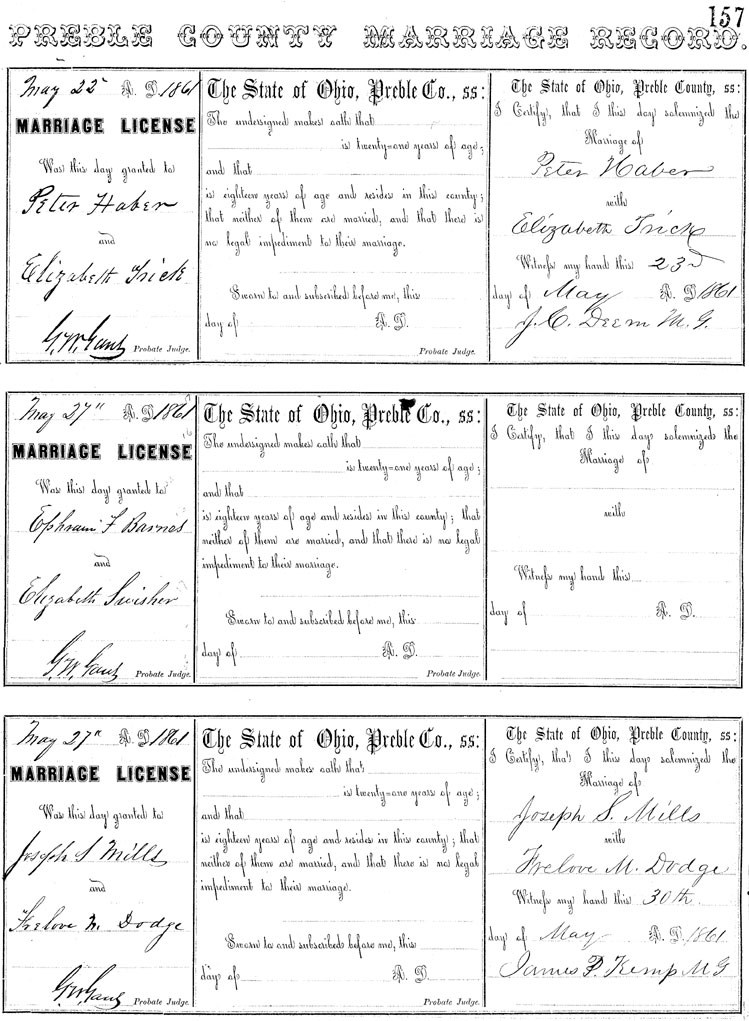 157
PREBLE COUNTY MARRIAGE RECORD.
May 22 A. D. 1861
MARRIAGE LICENSE
Was this day granted to
Peter Haber
and
Elizabeth Trick
G. W. Gans
Probate Judge.
The State of Ohio, Preble Co., ss:
The undersigned makes oath that
is twenty-one years of age;
and that
is eighteen years of age and resides in this county;
that neither of them are married, and that there is
no legal impediment to their marriage.
Sworn to and subscribed before me, this
day of A. D.
Probate Judge.
The State of Ohio, Preble County, ss:
I Certify, that I this day solemnized the
Marriage of
Peter Haber
with
Elizabeth Trick
Witness my hand this 23d
day of May A. D. 1861
J. C. Deem M. G.
May 27" A. D. 1861
MARRIAGE LICENSE
Was this day granted to
Ephraim F Barnes
and
Elizabeth Swisher
G. W. Gans
Probate Judge.
The State of Ohio, Preble Co., ss:
The undersigned makes oath that
is twenty-one years of age;
and that
is eighteen years of age and resides in this county; that
neither of them are married, and that there is no legal
impediment to their marriage.
Sworn to and subscribed before me, this
day of A. D.
Probate Judge.
The State of Ohio, Preble County, ss:
I Certify, that I this day solemnized the
Marriage of
with
Witness my hand this
day of A. D.
May 27" A. D. 1861
MARRIAGE LICENSE
Was this day granted to
Joseph S Mills
and
Frelove M. Dodge
G. W. Gans
Probate Judge.
The State of Ohio, Preble Co., ss:
The undersigned makes oath that
is twenty-one years of age;
and that
is eighteen years of age and resides in this county; that
neither of them are married, and that there is no legal
impediment to their marriage.
Sworn to and subscribed before me, this
day of A. D.
Probate Judge.
The State of Ohio, Preble County, ss:
I Certify, that I this day solemnized the
Marriage of
Joseph S. Mills
with
Frelove M. Dodge
Witness my hand this 30th
day of May A. D. 1861
James P. Kemp M G